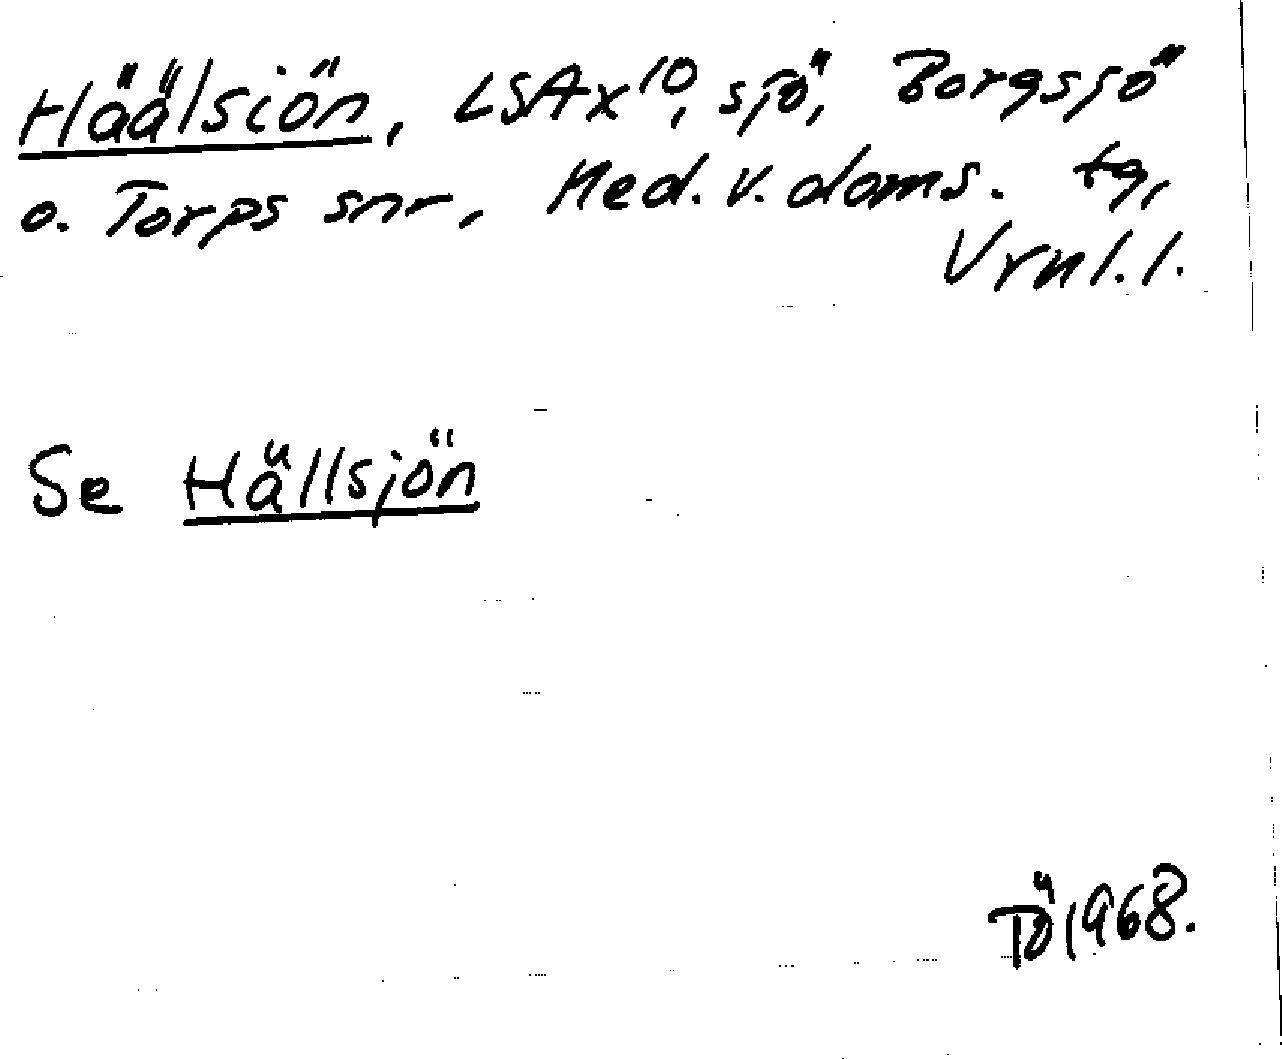 Häälsiön, LSAx10, sjö, Borgsjö
o. Torps snr, Med. v. doms. tg,
Vrnl. l.
Se Hällsjön
TÖ 1968.